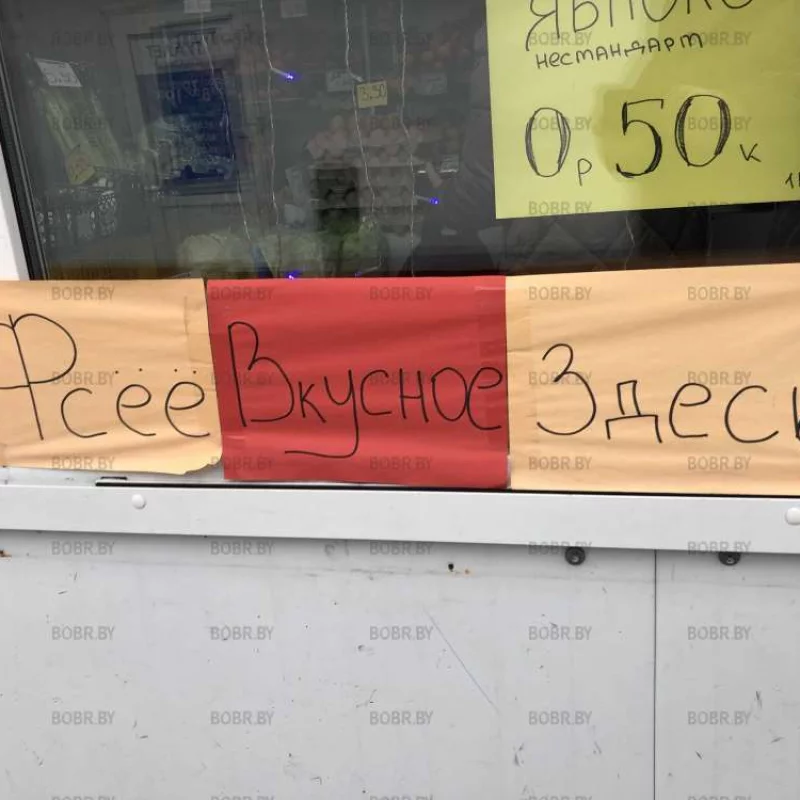 ЯБЛОКО
нестандарт
0р 50к
Фсёё Вкусное Здесь
BOBR.BY